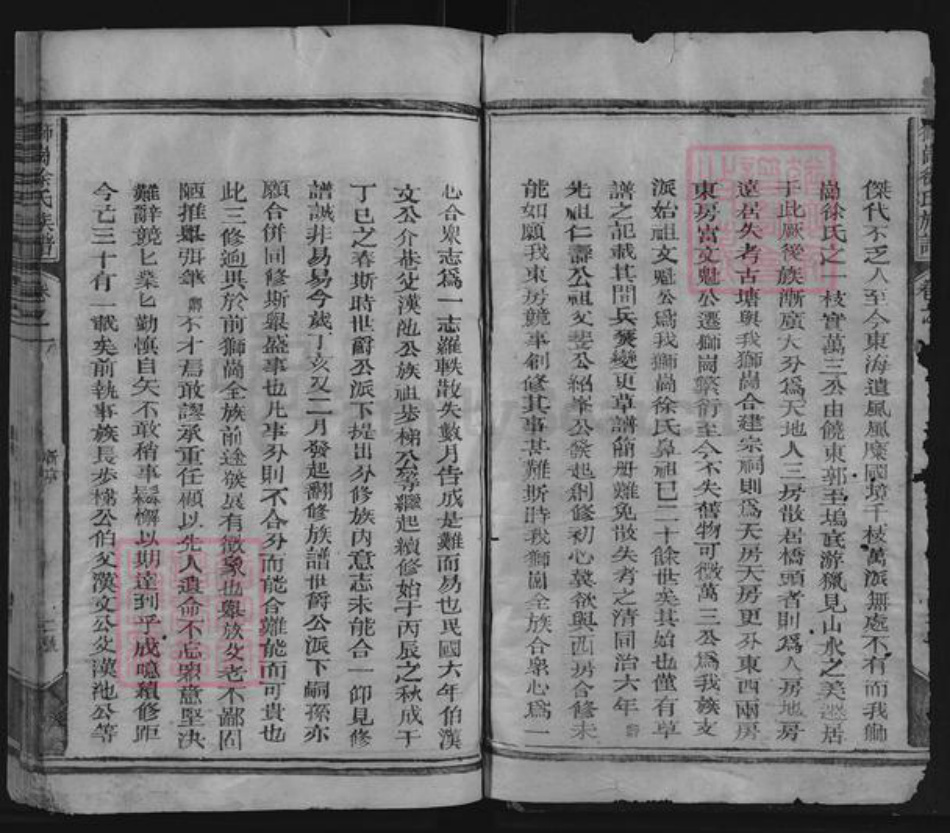 傑代不乏人至今東海遺風風靡國境千枝萬派無處不有而我獅
崗徐氏之一枝實萬三公由饒東郭至塢底游獵見山水之美遂居
于此厥後族漸廣大分爲天地人三房散居橋頭者則爲人房地房
遠居失考古塘與我獅崗合建宗祠則爲天房天房更分東西兩房
東房富文魁公遷獅崗繁衍至今不失舊物可徵萬三公爲我族支
派始祖文魁公爲我獅崗徐氏鼻祖已二十餘世矣其始也僅有草
譜之記載其間兵燹變更草譜簡册難免散失考之清同治六年
先祖仁壽公祖父斐公紹峯公發起創修初心冀欲與西房合修未
能如願我東房競事創修其事甚難斯時我獅崗全族合衆心爲一
心合衆志爲一志羅軼散失數月告成是難而易也民國六年伯漢
文公介菴父漢池公族祖步梯公等繼起續修始于丙辰之秋成于
丁巳之春斯時世爵公派下提出分修族內意志未能合一仰見修
譜誠非易易今歲丁亥又二月發起翻修族譜世爵公派下嗣孫亦
願合併同修斯舉盛事也凡事分則不合分而能合難能而可貴也
此三修迥異於前獅崗全族前途發展有徵象也舉放父老不鄙固
陋推舉弭筆 不才焉敢謬承重任顧以先人遺命不忘衆意堅决
難辭競匕業匕勤慎自矢不敢稍事鬆懈以期達到乎成噫續修距
今亡三十有一載矣前執事族長步梯公伯父漢文公父漢池公等
獅崗徐氏族譜
卷